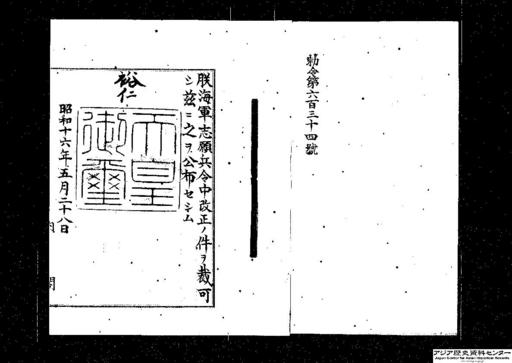 勅令第六百三十四號
朕海軍志願兵令中改正ノ件ヲ裁可
シ茲ニ之ヲ公布セシム
裕仁
天皇
御璽
昭和十六年五月二十八日
内閣
アジア歴史資料センター
Japan Center for Asian Historical Records